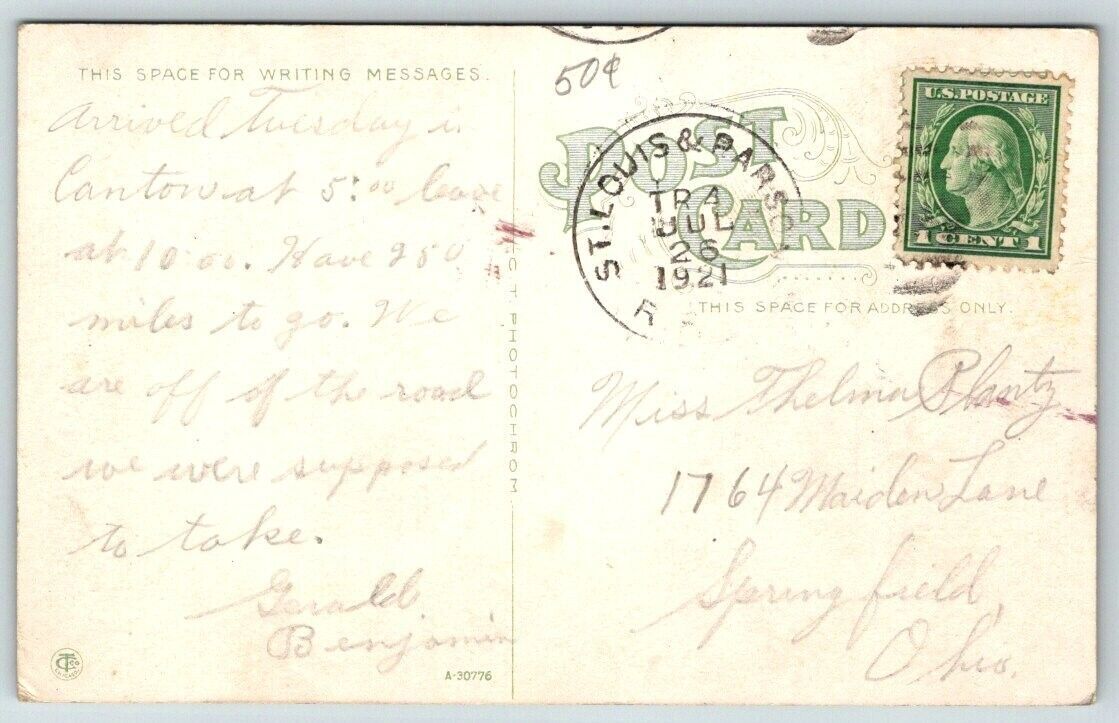 THIS SPACE FOR WRITING MESSAGES.
Arrived Tuesday in
Canton at 5:00 leave
at 10:00. Have 250
miles to go. We
are off of the road
we were supposed
to take.
Gerald
Benjamin
CT Co
CHICAGO
A-30776
C T PHOTOCHROM
50¢
POST CARD
ST. LOUIS & PARS
TR 4
JUL
26
1921
R
U.S. POSTAGE
1 CENT 1
THIS SPACE FOR ADDRESS ONLY.
Miss Thelma Plantz
1764 Maiden Lane
Springfield,
Ohio.